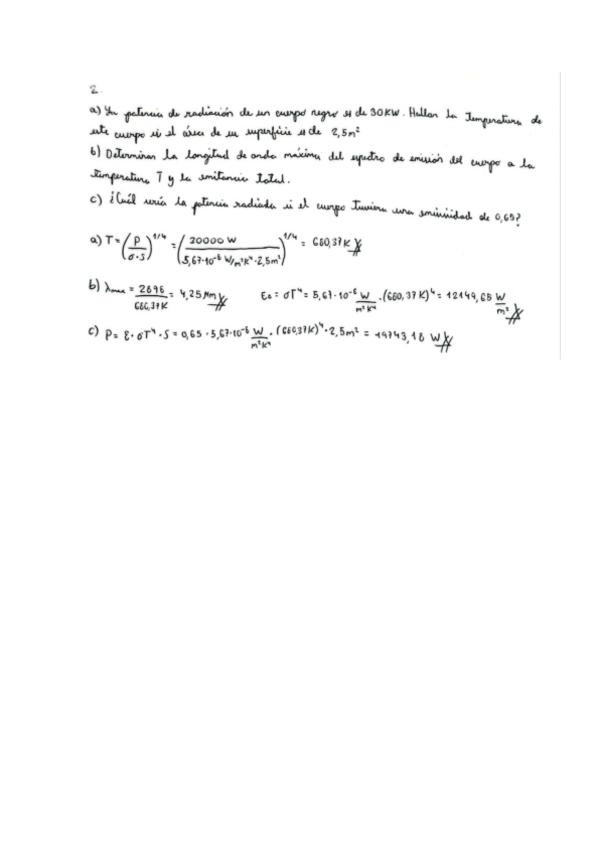 2.
a) La potencia de radiación de un cuerpo negro es de 30KW. Hallar la Temperatura de
este cuerpo si el área de su superficie es de 2,5m²
b) Determinar la longitud de onda máxima del espectro de emisión del cuerpo a la
temperatura T y la emitancia total.
c) ¿Cuál sería la potencia radiada si el cuerpo tuviera una emisividad de 0,65?
a) T = (P / σ·S)^1/4 = (30000 W / 5,67·10⁻⁸ W/m²K⁴·2,5m²)^1/4 = 680,37K
b) λmax = 2896 / 680,37K = 4,25μm E₀ = σT⁴ = 5,67·10⁻⁸ W/m²K⁴ · (680,37K)⁴ = 12149,65 W/m²
c) P = ε·σT⁴·S = 0,65·5,67·10⁻⁸ W/m²K⁴ · (680,37K)⁴·2,5m² = 19743,18 W